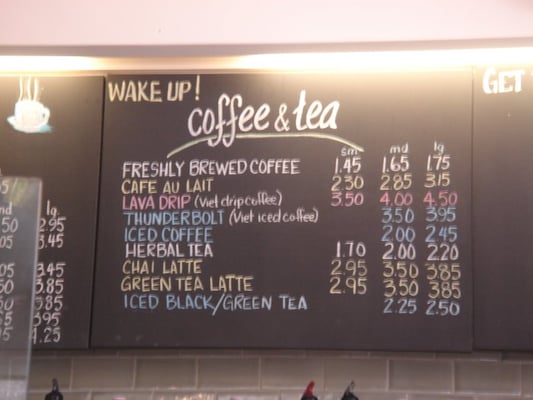 WAKE UP!
coffee & tea
sm md lg
FRESHLY BREWED COFFEE 1.45 1.65 1.75
CAFE AU LAIT 2.30 2.85 3.15
LAVA DRIP (Viet drip coffee) 3.50 4.00 4.50
THUNDERBOLT (Viet iced coffee) 3.50 3.95
ICED COFFEE 2.00 2.45
HERBAL TEA 1.70 2.00 2.20
CHAI LATTE 2.95 3.50 3.85
GREEN TEA LATTE 2.95 3.50 3.85
ICED BLACK/GREEN TEA 2.25 2.50
GET
lg
2.95
3.45
3.45
3.85
3.95
4.25